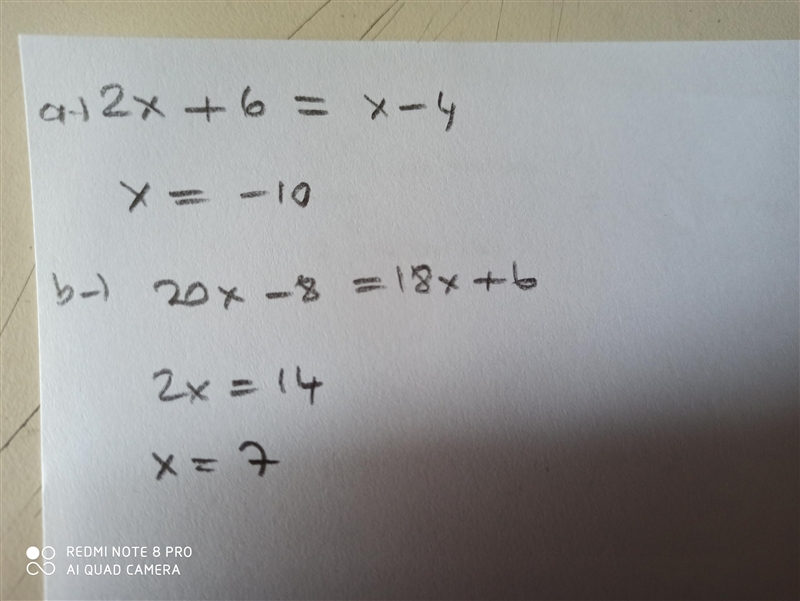 a-) 2x + 6 = x - 4
x = -10
b-) 20x - 8 = 18x + 6
2x = 14
x = 7
REDMI NOTE 8 PRO
AI QUAD CAMERA